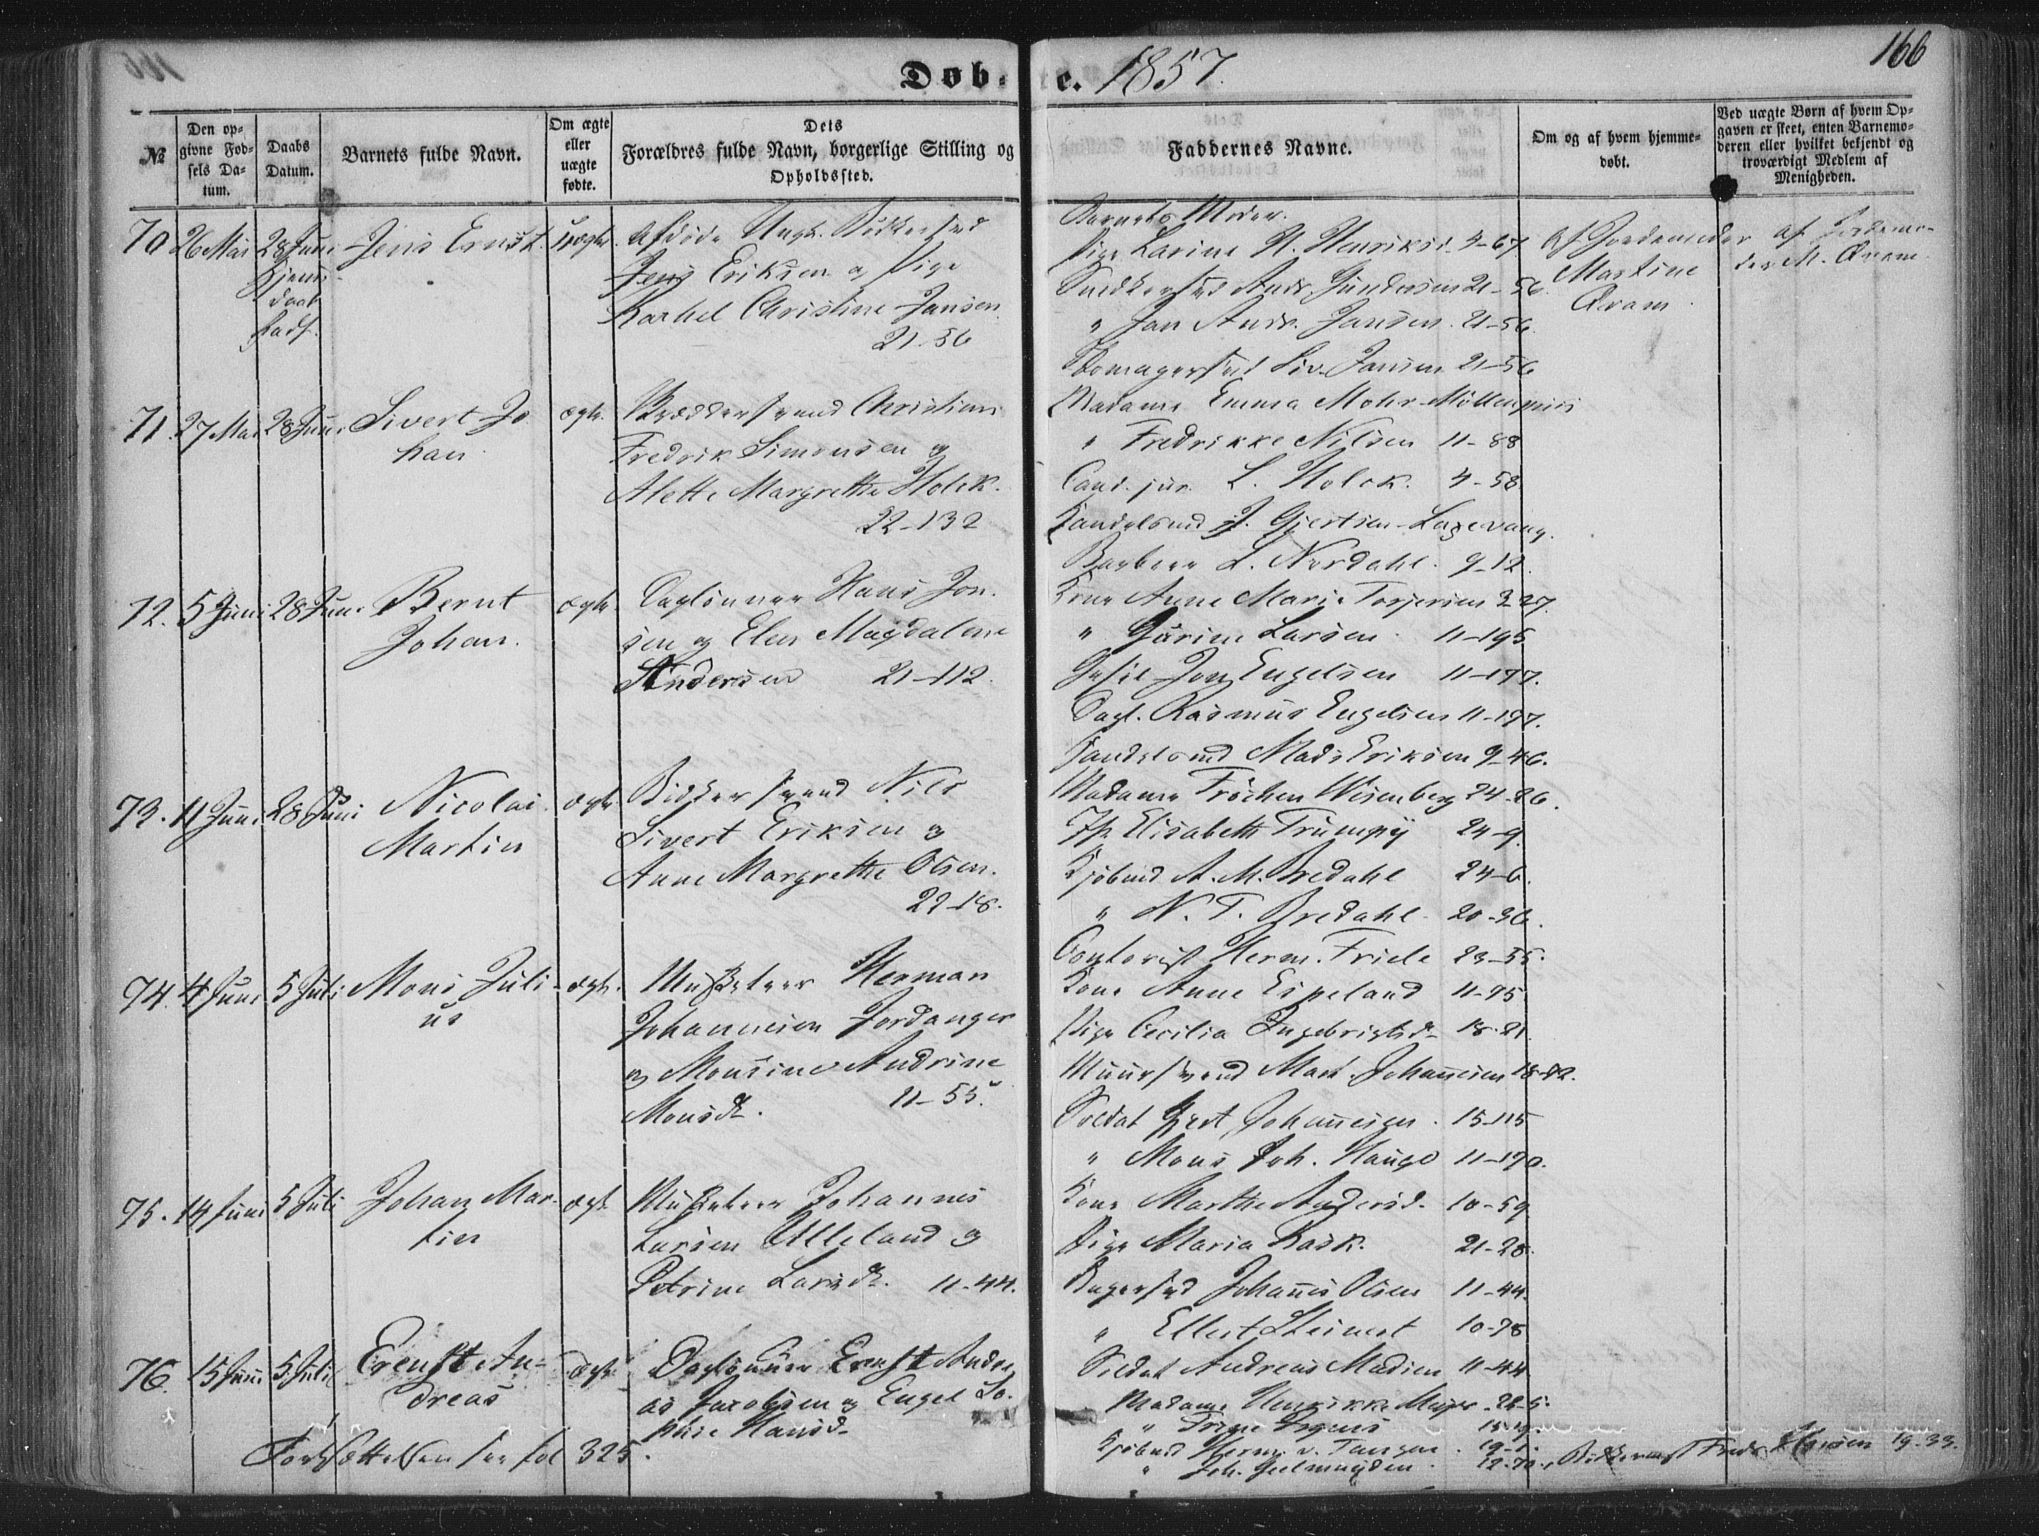 Døb-  te. 1857.
166
№
Den op-
givne Fød-
sels Da-
tum.
Daabs
Datum.
Barnets fulde Navn.
Om ægte
eller
uægte
fødte.
Dets
Forældres fulde Navn, borgerlige Stilling og
Opholdssted.
Faddernes Navne.
Om og af hvem hjemme-
døbt.
Ved uægte Børn af hvem Op-
gaven er skeet, enten Barnemo-
deren eller hvilket bekjendt og
troværdigt Medlem af
Menigheden.
70 26 Mai 28 Juni Jens Ernst. uægte.
Hjemme
daab
stadf.
afdøde Ungk. Bødkersvd
Jens Eriksen og Pige
Rachel Christine Jansen
21-56
Barnets Moder.
Pige Larine H. Henriksd. 3-67
Snedkersvd Andr. Gundersen 21-56
" Jan Andr. Jansen. 21-56.
Skomagersvd Siv. Jansen 21-56
af Jordemoder
Martine
Qvam
af Jordemo-
der M. Qvam.
71. 27 Mai 28 Juni Sivert Jo
han
ægte.
Christian
Fredrik Simonsen og
Alette Margrethe Holck.
22-132
Madame Emma Mohr Möllenpriis
" Fredrikke Nilsen 11-88
Cand. jur. L. Holck. 4-58
Handelsmd J. Gjertsen
L. Nordahl. 9-12.
72. 5 Juni 28 Juni Bernt
Johan.
ægte.
Daglönner Hans Jon.
sen og Elen Magdalene
Andersen 21-112.
Kone Anne Marie Torjersen 2-27.
" Gurine Larsen 11-195
Jon Engelsen 11-197.
Dagl. Rasmus Engelsen 11-197.
Handelsmd Mads Eriksen 9-46.
73. 11 Juni 28 Juni Nicolai
Martin
ægte
Bødkersvend Nils
Sivert Eriksen og
Anne Margrethe Olsen.
22-18.
Madame Fröchen Wesenberg 24-26.
Jfr Elisabeth Trumpy 24-9.
Kjöbmd A. M. Bredahl 24-6.
" N. T. Bredahl 20-36.
Contorist Herm. Friele 23-55.
74. 4 Juni 5 Juli Mons Juli-
us
ægte.
Musketeer Herman
Johannesen Jordanger
og Monsine Andrine
Monsdtr. 11-55.
Kone Anne Espeland 11-95
Pige Cecilia Ingebrigtsdr 18-21.
Muursvend Mart. Johannesen 18-82.
Soldat Gjert Johannesen. 15-115
" Mons Joh. Hauge 11-170.
75. 14 Juni 5 Juli Johan Mar-
tin
ægte
Musketeer Johannes
Larsen Ulleland og
Petrine Larsdtr. 11-44.
Kone Marthe Andersd. 10-59
Pige Maria Rask. 21-28.
Bagersvd Johannes Olsen 11-44.
" Ellert Steinert 10-78
Soldat Andreas Madsen 11-44
76. 15 Juni 5 Juli Ernst An-
dreas
ægte
Daglönner Ernst Andre
as Jacobsen og Engel So-
phie Hansd.
Madame Henrikke Meyer. 22-5.
" Trine
Kjöbmd Herm. v. Tangen.
" Joh. Geelmuyden.
Fortsættelsen see fol 325.